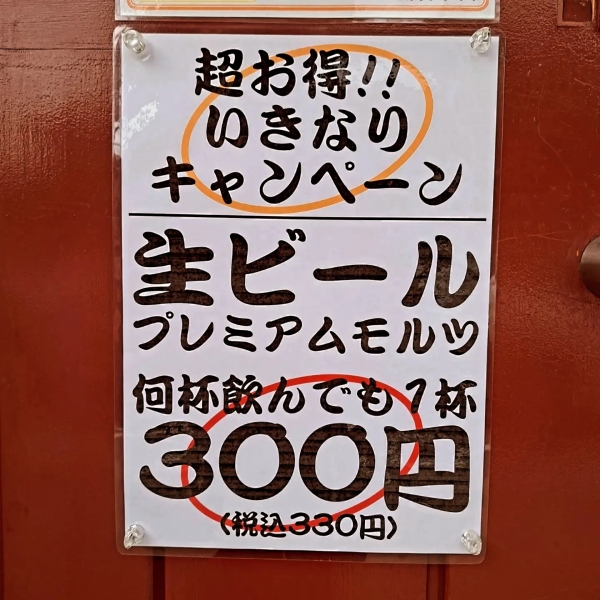 超お得!!
いきなり
キャンペーン
生ビール
プレミアムモルツ
何杯飲んでも1杯
300円
(税込330円)